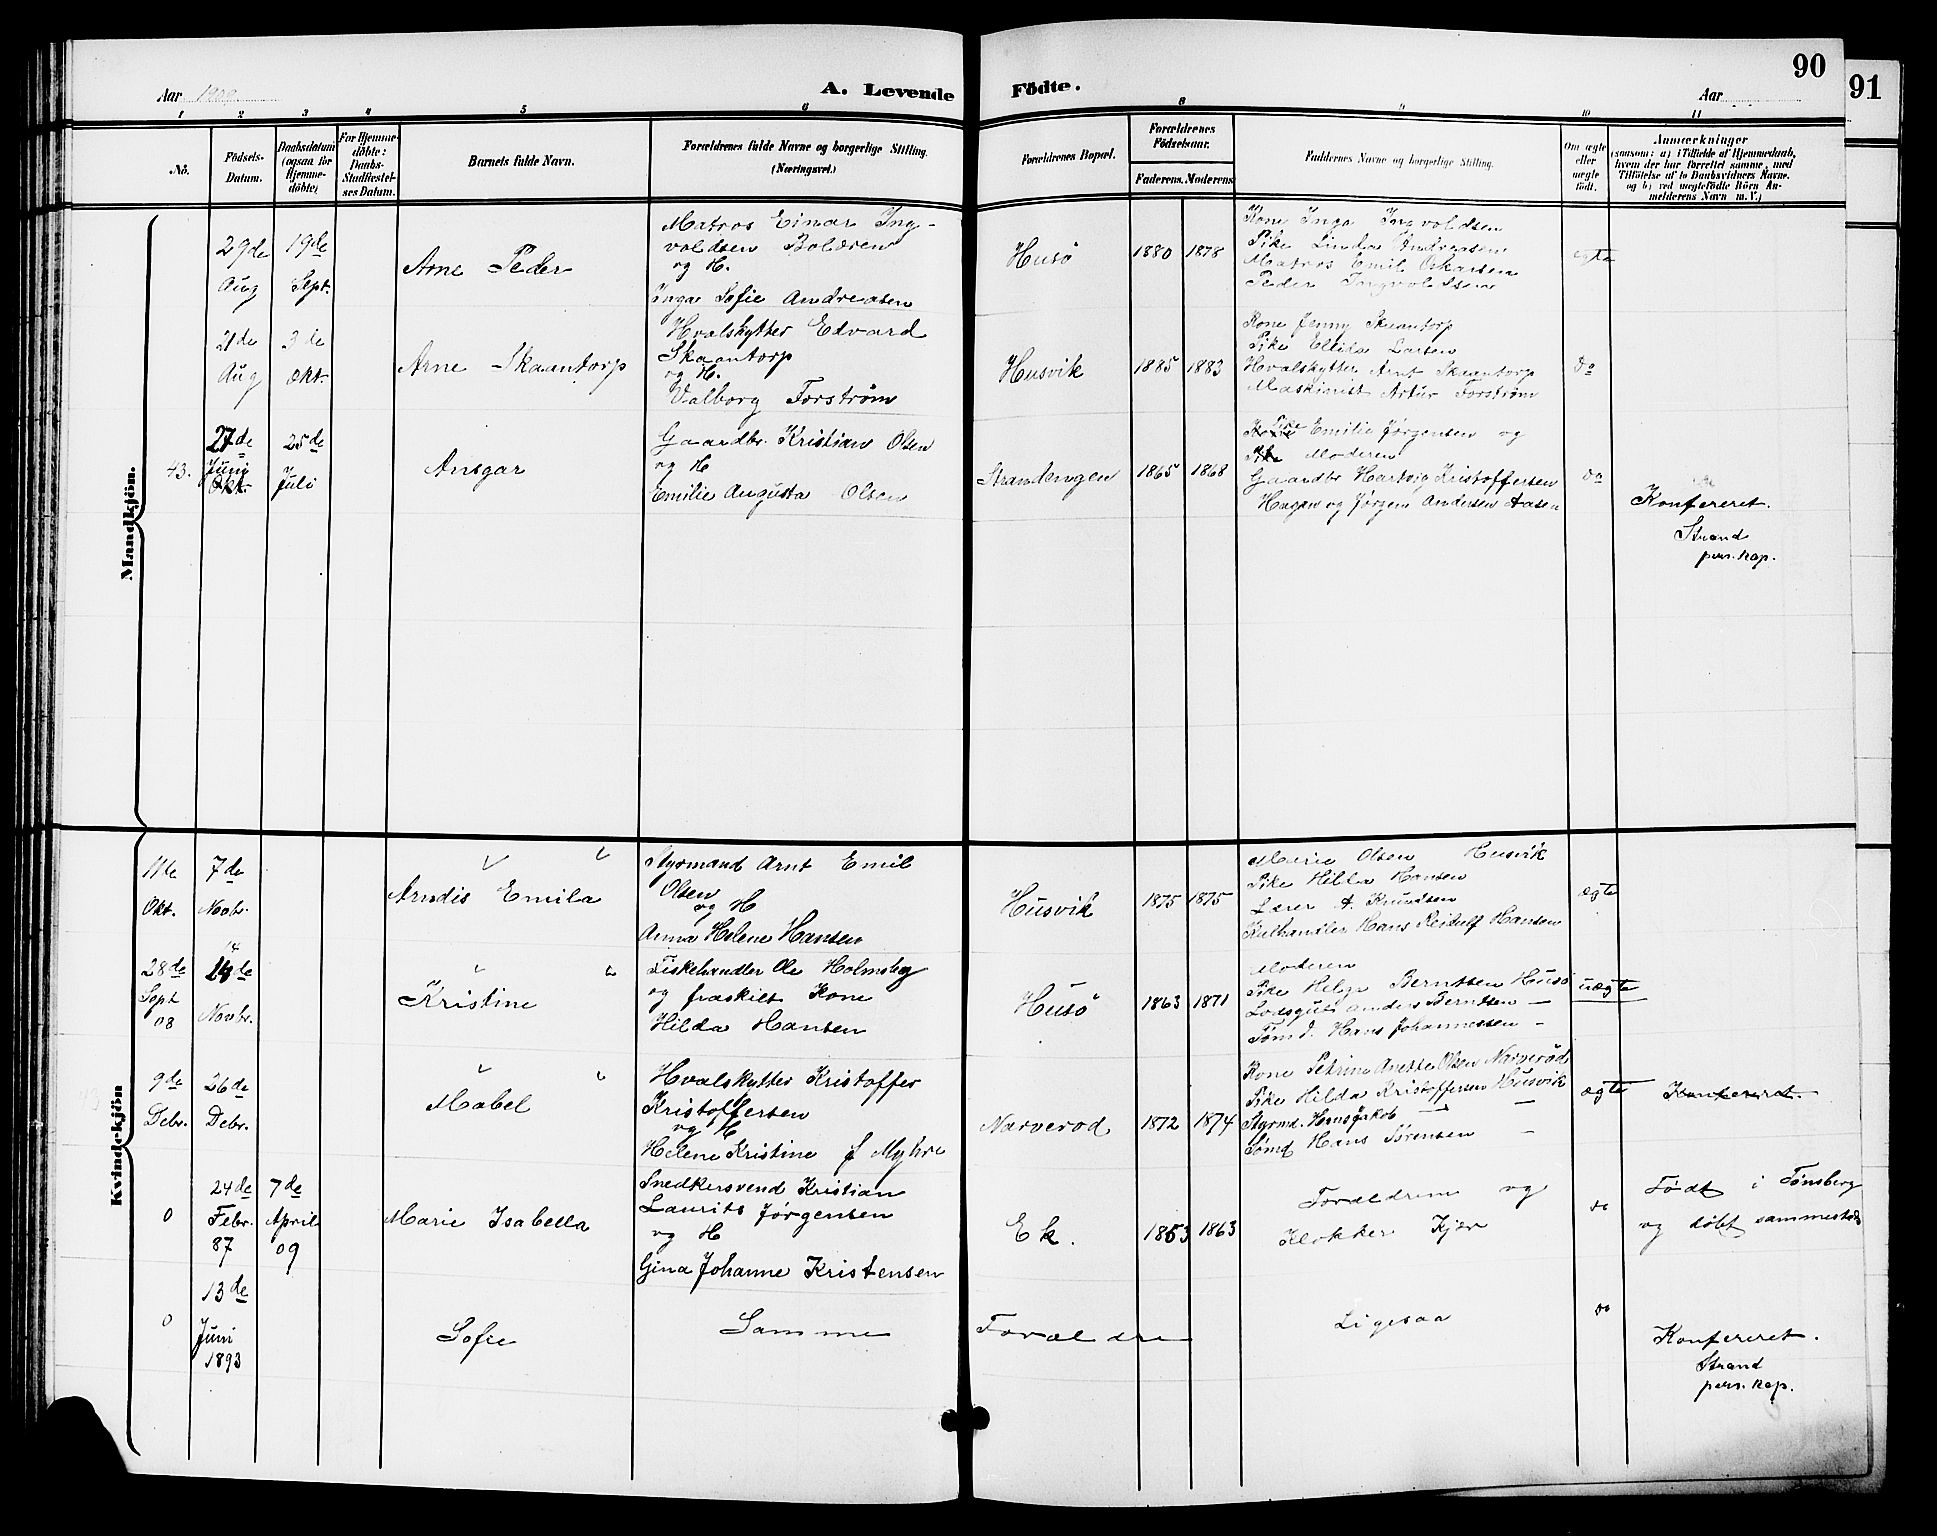 90
91
Aar 1909
A. Levende Födte.
Aar
1 2 3 4 5 6 8 9 10 11
No.
Födsels-Datum.
Daabsdatum (ogsaa for Hjemme-döbte)
For Hjemme-döbte: Daabs-Stadfæstel-ses Datum.
Barnets fulde Navn.
Forældrenes fulde Navne og borgerlige Stilling. (Næringsvei.)
Forældrenes Bopæl.
Forældrenes Födselsaar.
Faderens. Moderens
Faddernes Navne og borgerlige Stilling.
Om ægte eller uægte födt.
Anmærkninger
(saasom: a) i Tilfælde af Hjemmedaab,
hvem der har forrettet samme, med
Tilföielse af to Daabsvidners Navne.
og b) ved uægtefödte Börn An-
melderens Navn m. V.)
Mandkjön.
29de Aug
19de Sept.
Arne Peder
Matros Einar Ing-
voldsen Bolæren
og H.
Inga Sofie Andreasen
Husö
1880 1878
Kone Inga Ingvoldsen
Pike Linda Andreasen
Matros Emil Oskarsen
Peder Ingvoldsen
ægte
21de Aug
3de Okt.
Arne Skaantorp
Hvalskytter Edvard
Skaantorp
og H.
Valborg Forstrøm
Husvik
1885 1883
Kone Jenny Skaantorp
Pike Ellida Larsen
Hvalskytter Arnt Skaantorp
Maskinist Artur Forstrøm
do
43.
27de Juni Okt.
25de Juli
Ansgar
Gaardbr. Kristian Olsen
og H
Emilie Augusta Olsen
Strandengen
1865 1868
Kone Pike Emilie Jørgensen og
Pike Moderen
Gaardbr Hartvig Kristoffersen
Haugen og Jørgen Andersen Aasen
do
Konfereret.
Strand
pers.kap.
Kvindekjön
11te Okt.
7de Novbr.
Arndis Emila
Styrmand Arnt Emil
Olsen
og H
Anna Helene Hansen
Husvik
1875 1875
Marie Olsen Husvik
Pike Hilda Hansen
Lærer A. Knudsen
Kulhandler Hans Reidulf Hansen
ægte
28de Sept 08
14 14de Novbr.
Kristine
Fiskehandler Ole Holmsbg
og fraskilt Kone
Hilda Hansen
Husö
1863 1871
Moderen
Pike Helga Berntsen Husö
Losgut Anders Berntsen —
Tømd. Hans Johannessen —
uægte
9de Debr.
26de Debr.
Mabel
Hvalskytter Kristoffer
Kristoffersen
og H
Helene Kristine f Myhre
Narverød
1872 1874
Kone Petrine Anette Olsen Narveröd
Pike Hilda Kristoffersen Husvik
Styrmd. Hans Jakob — —
Sømd Hans Sørensen —
ægte
Konfereret.
0
24de Febr. 87
7de April 09
Marie Isabella
Snedkersvend Kristian
Laurits Jørgensen
og H
Gina Johanne Kristensen
Ek.
1853 1863
Forældrene og
Klokker Kjær
do
Født i Tønsberg
og døbt sammesteds
0
13de Juni 1893
Sofie
Samme Forældre
Ligesaa
do
Konfereret.
Strand
pers.kap.